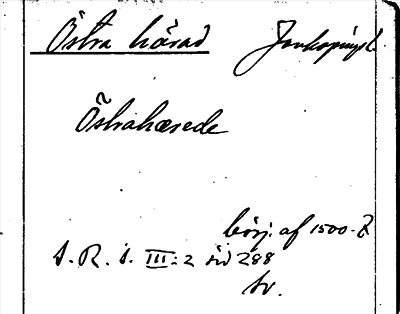 Östra härad Jönköpings l.
Östrahærede
börj. af 1500-t
S. R. S. III:2 sid 288
sv.